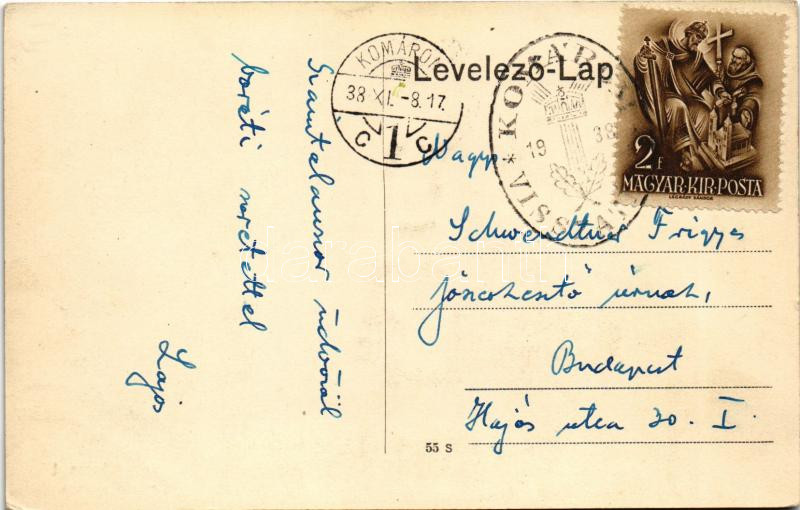 Levelező-Lap
KOMÁROM
38 XI. -8. 17
C 1 C
* KOMÁROM VISSZATÉRT
19 38
2 F
MAGYAR·KIR·POSTA
LEGRÁDY SÁNDOR
Nagys.
Schwendtner Frigyes
úrnak,
Budapest
Hajós utca 30. I.
üdvözöl
baráti szeretettel
Lajos
55 S
darabanth